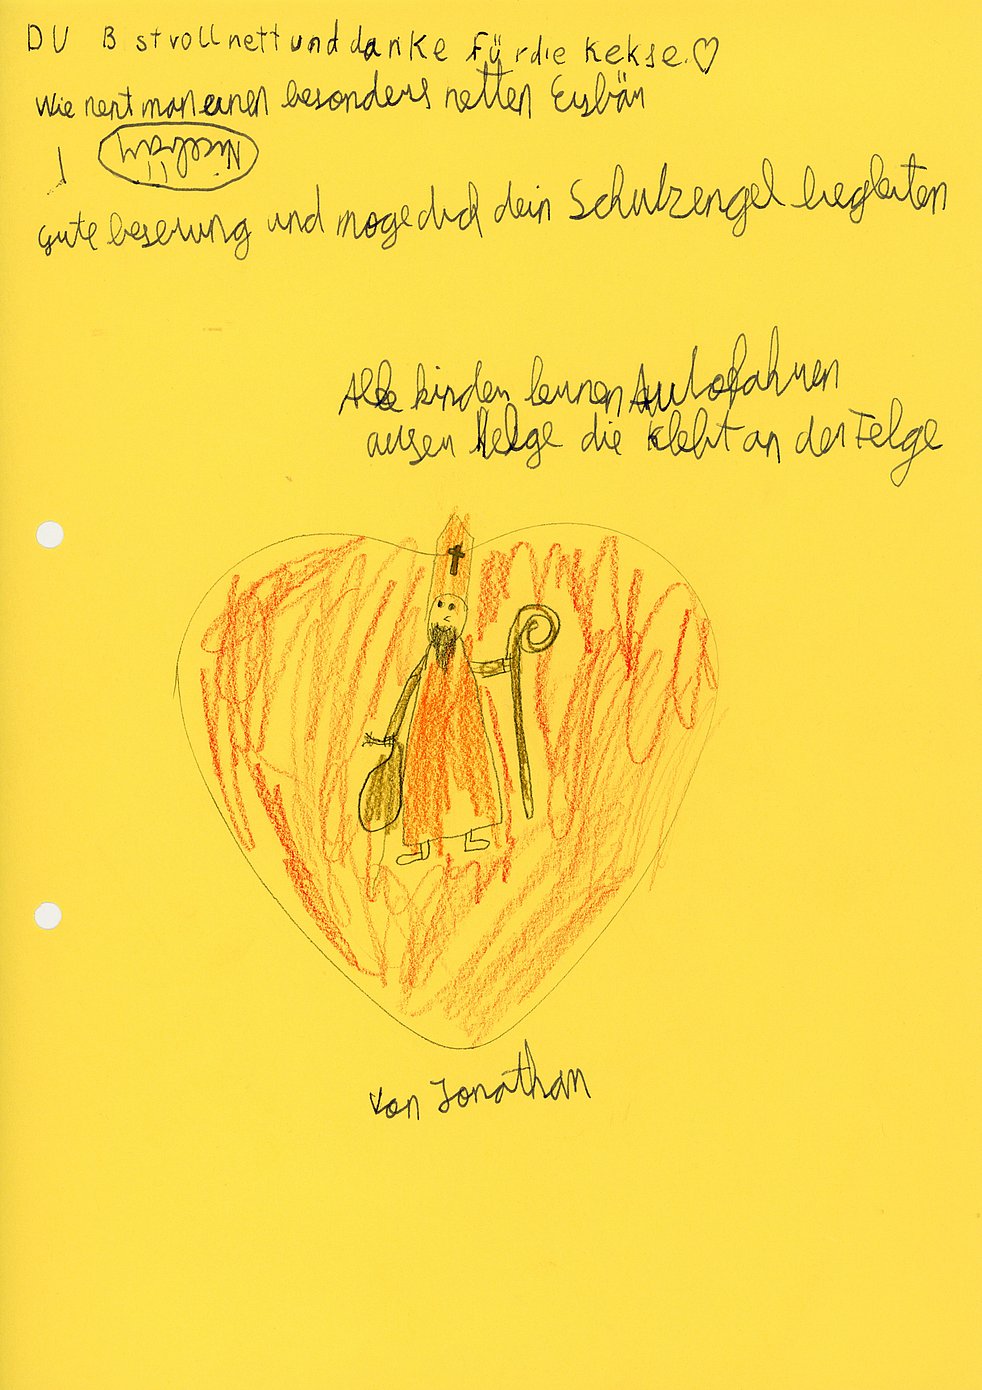 DU Bist voll nett und danke für die Kekse. ♡
Wie nent man einen besonders netten Eisbär
Nicebär
gute beserung und möge dich dein Schutzengel begleiten
Alle kinder lernen Autofahren
auser Helge die klebt an der Felge
von Jonathan